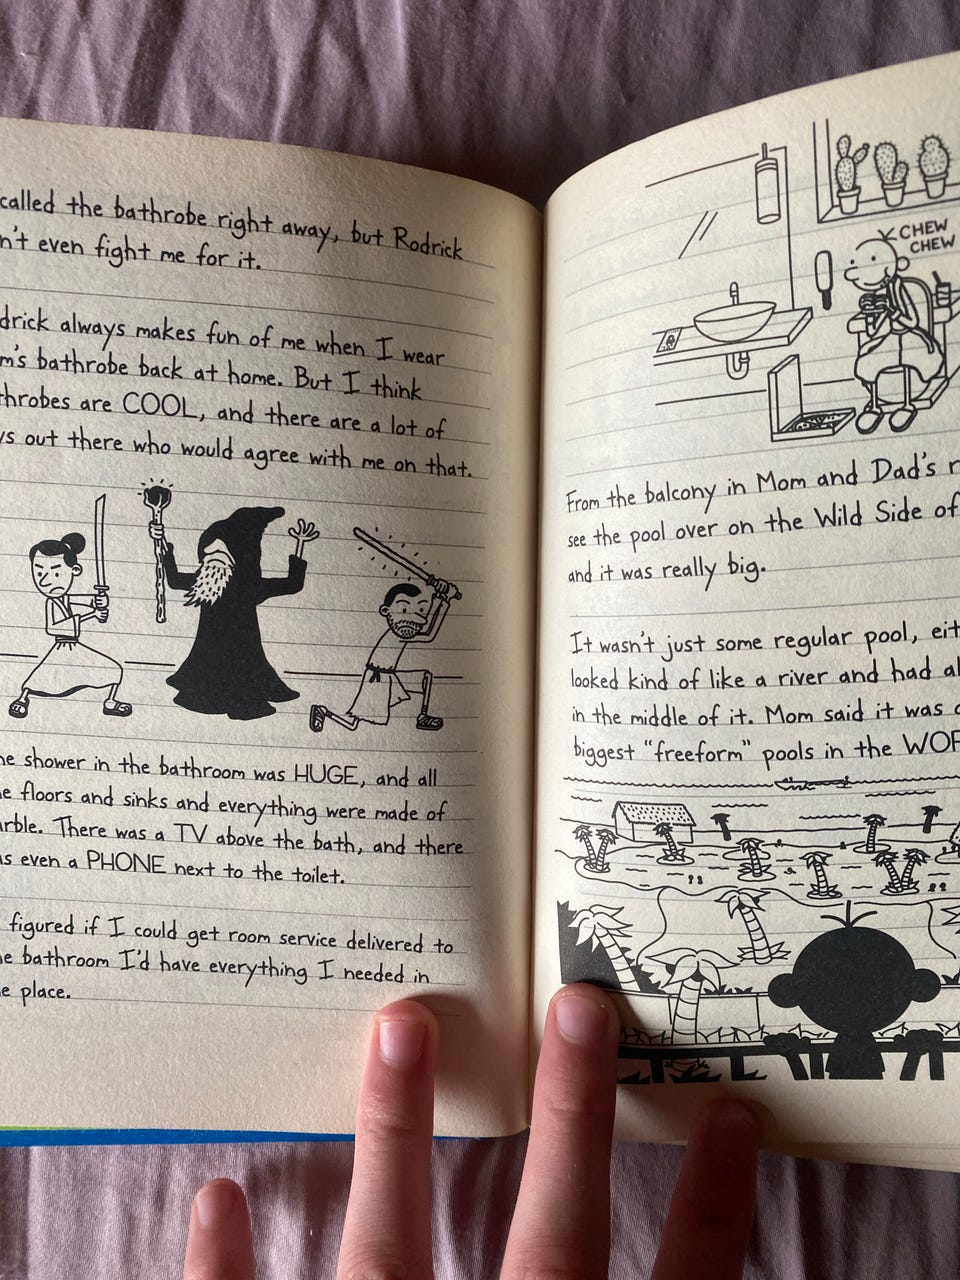 called the bathrobe right away, but Rodrick
n't even fight me for it.
drick always makes fun of me when I wear
m's bathrobe back at home. But I think
throbes are COOL, and there are a lot of
ys out there who would agree with me on that.
he shower in the bathroom was HUGE, and all
e floors and sinks and everything were made of
arble. There was a TV above the bath, and there
as even a PHONE next to the toilet.
figured if I could get room service delivered to
he bathroom I'd have everything I needed in
e place.
CHEW
CHEW
From the balcony in Mom and Dad's r
see the pool over on the Wild Side of
and it was really big.
It wasn't just some regular pool, eit
looked kind of like a river and had al
in the middle of it. Mom said it was o
biggest "freeform" pools in the WOR